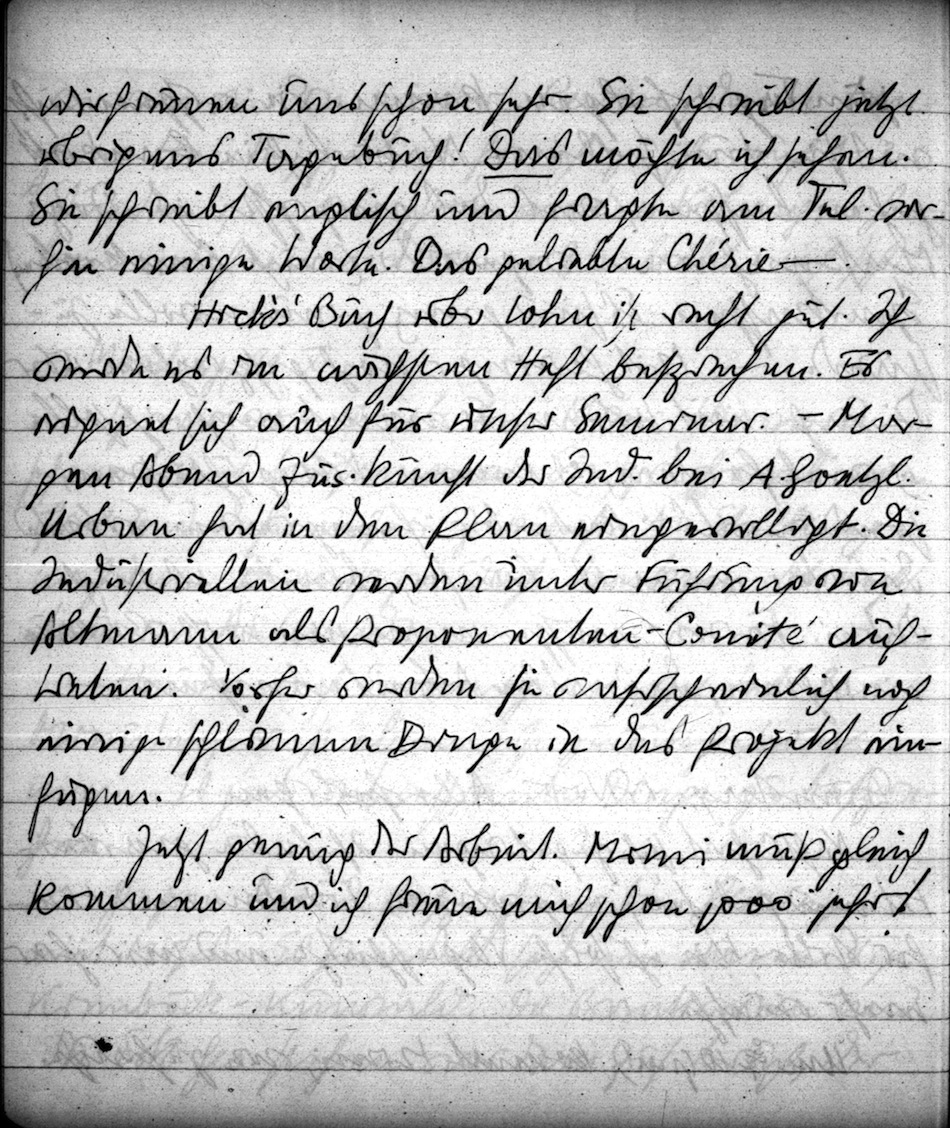 wir freuen uns schon sehr. Sie schreibt jetzt
übrigens Tagebuch! Das möchte ich sehen.
Sie schreibt englisch und fragte am Tel. vor-
hin einige Worte. Das geliebte Chérie—.
Hicks' Buch über Lohn ist recht gut. Ich
werde es im nächsten Heft besprechen. Es
eignet sich auch für unser Seminar. – Mor-
gen Abend Zus.kunft der Ind. bei A. Goetzl.
Urban hat in den Plan eingewilligt. Die
Industriellen werden unter Führung von
Altmann als Proponenten-Comité auf-
treten. Vorher werden sie wahrscheinlich noch
einige schlimme Dinge in das Projekt ein-
fügen.
Jetzt genug der Arbeit. Momi muß gleich
kommen und ich freue mich schon sooo sehr!